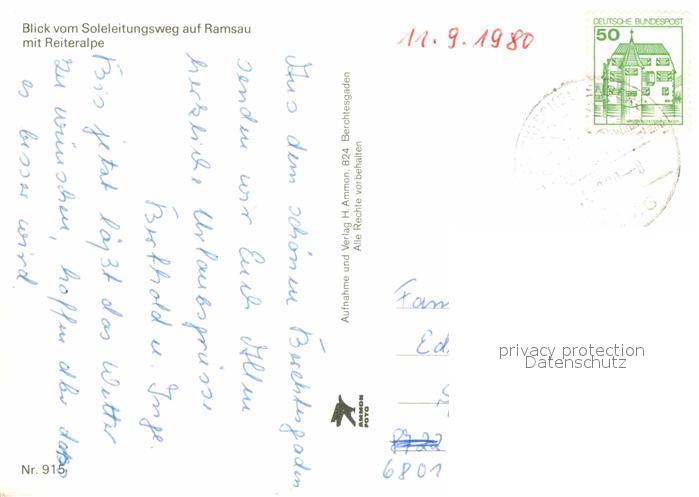 Blick vom Soleleitungsweg auf Ramsau
mit Reiteralpe
11. 9. 1980
DEUTSCHE BUNDESPOST
50
Aus dem schönen Berchtesgaden
senden wir Euch Allen
herzliche Urlaubsgrüsse
Berthold u. Inge.
Bis jetzt läßt das Wetter
zu wünschen, hoffen aber dass
es besser wird.
Aufnahme und Verlag H. Ammon, 824 Berchtesgaden
Alle Rechte vorbehalten
AMMON
FOTO
Fam
Ed
privacy protection
Datenschutz
8722
6801
Nr. 915